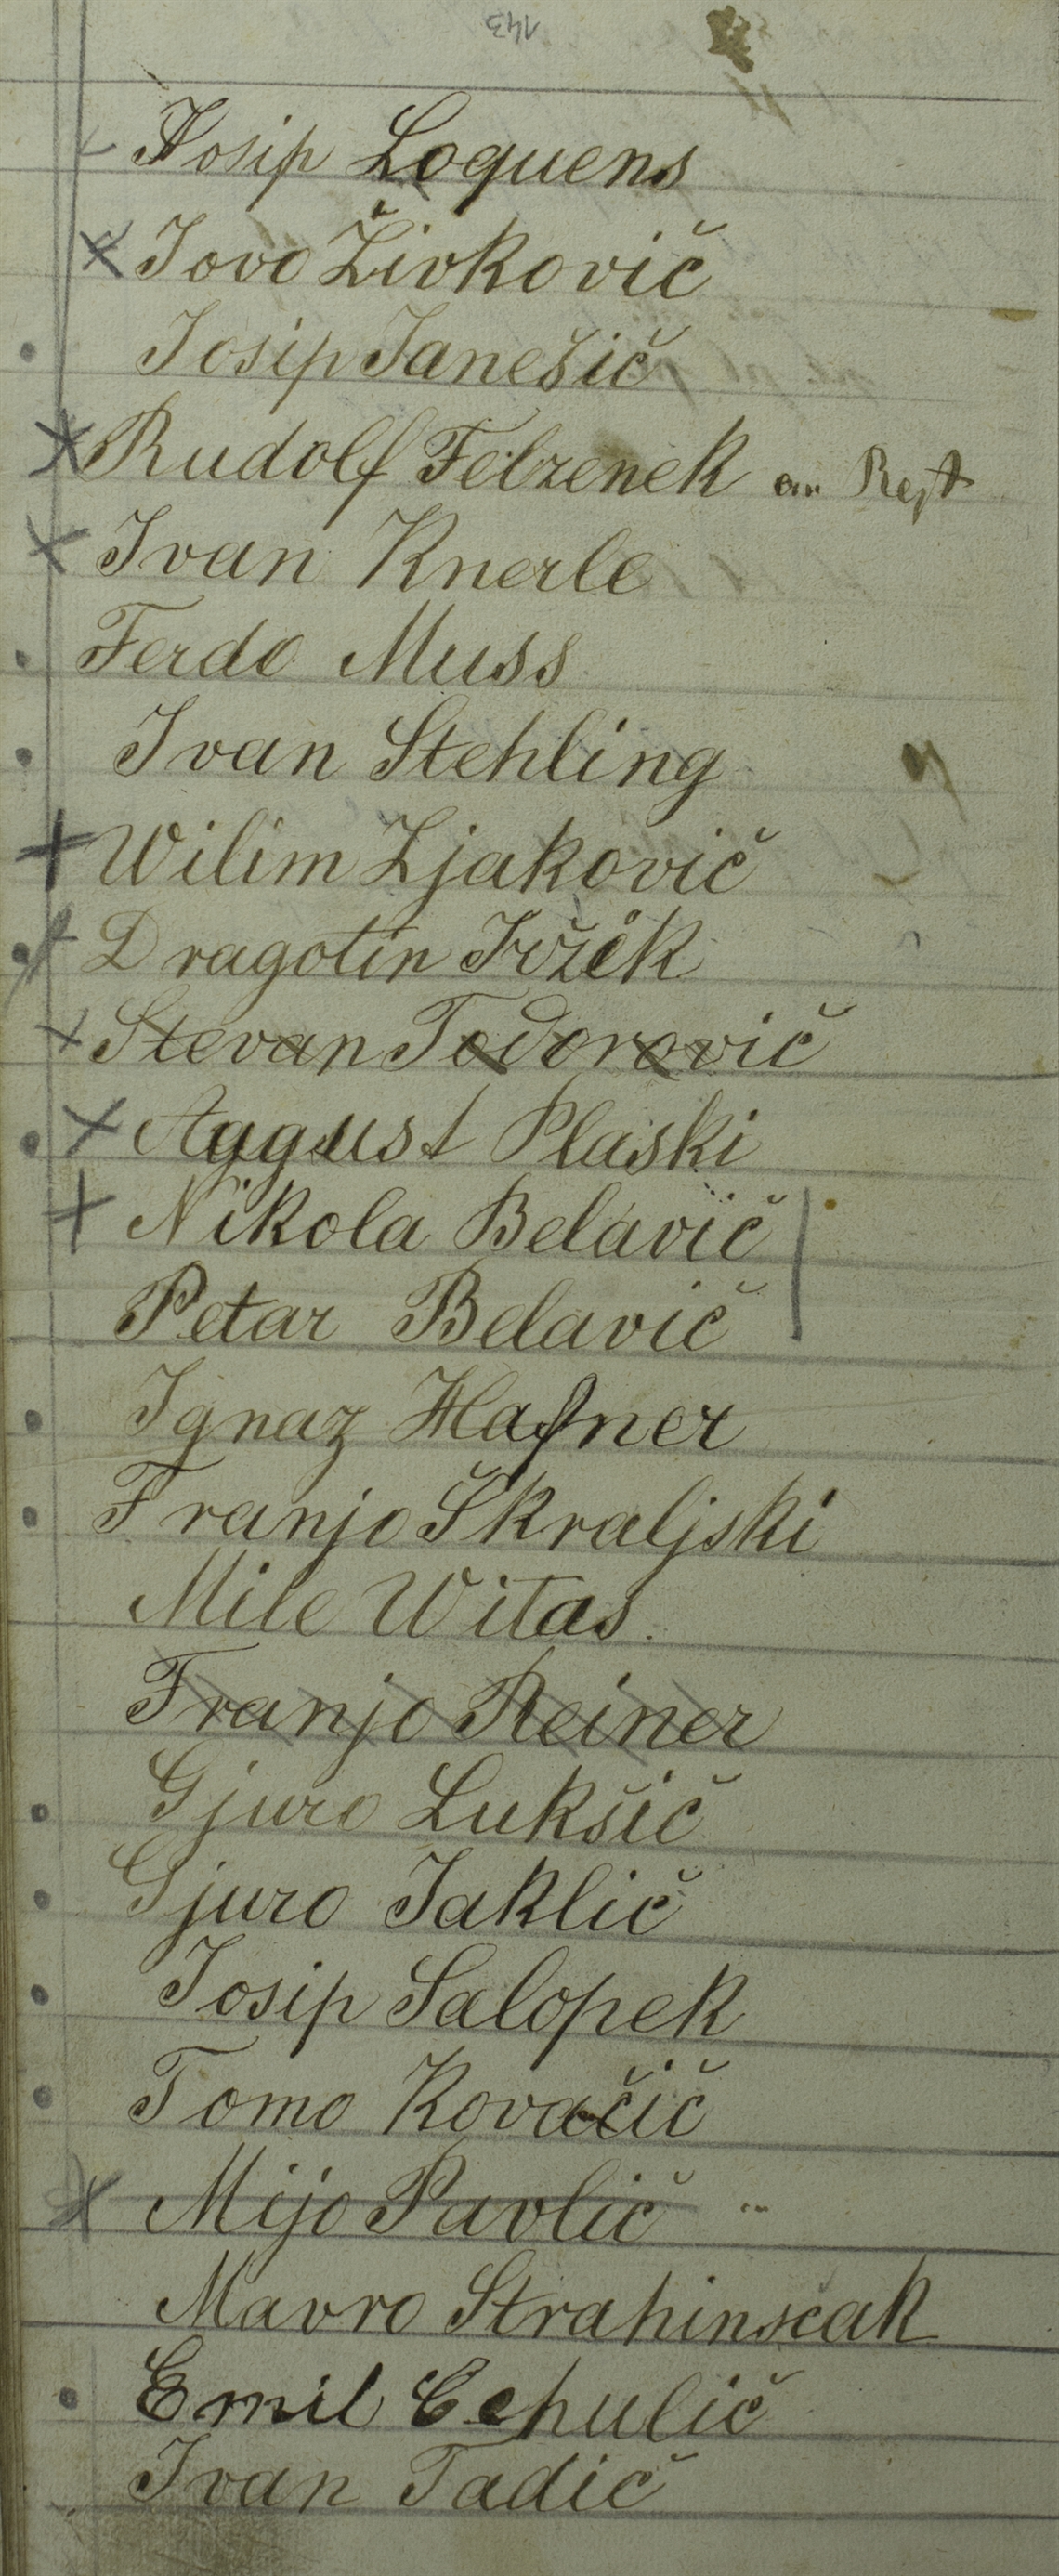 143
Josip Loquens
Jovo Živkovič
Josip Janešič
Rudolf Felzenek an Rest
Ivan Knerle
Ferdo Muss
Ivan Stehling
Wilim Ljakovič
Dragotin Iržik
Stevan Todorovič
August Plaski
Nikola Belavič
Petar Belavič
Ignaz Hafner
Franjo Škraljski
Mile Witas
Franjo Reiner
Gjuro Lukšič
Gjuro Jaklič
Josip Salopek
Tomo Kovačič
Mijo Pavlič
Mavro Strahinscak
Emil Cehulič
Ivan Tadič